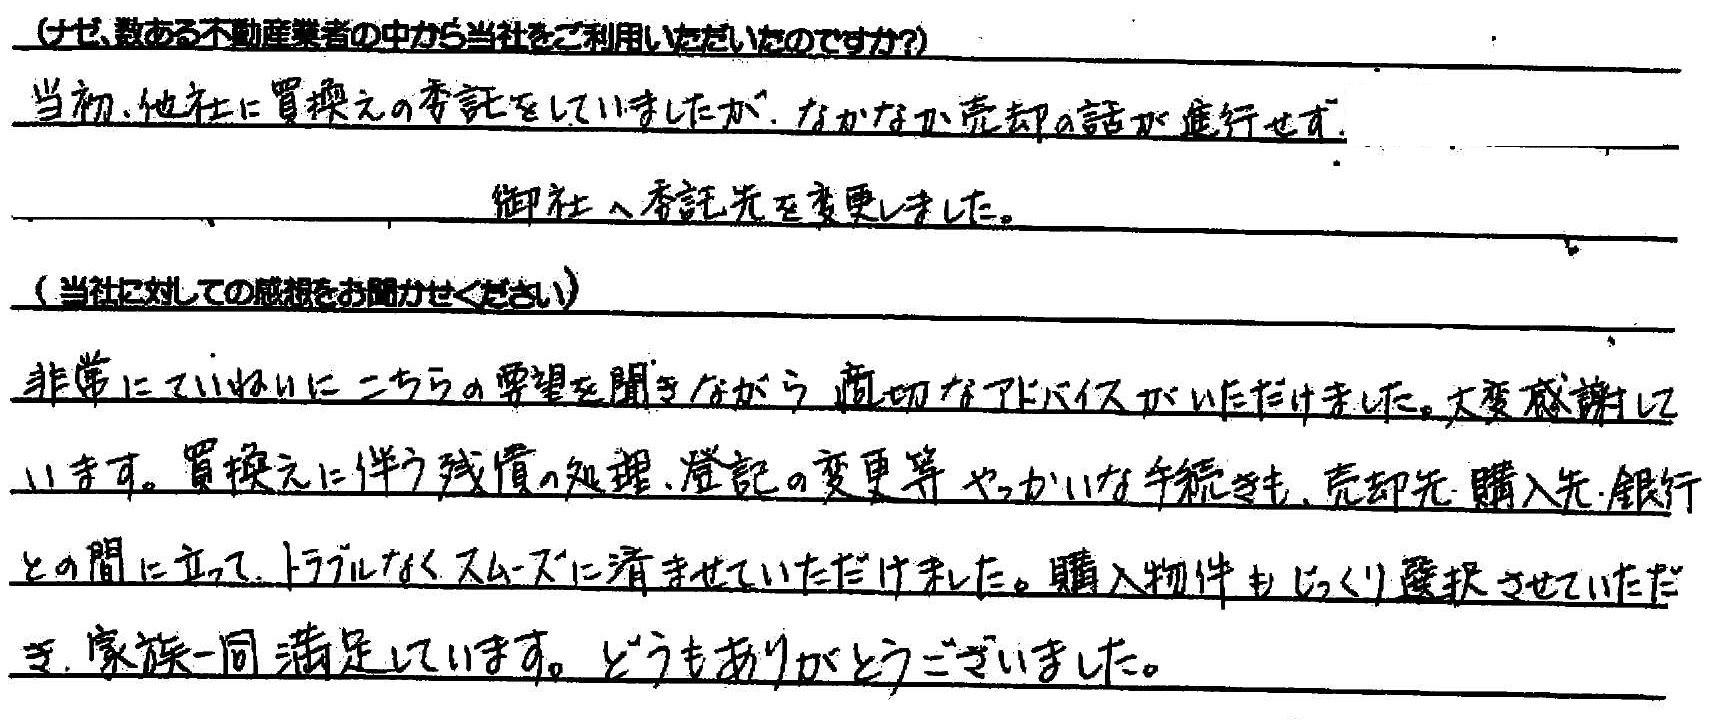 (ナゼ、数ある不動産業者の中から当社をご利用いただいたのですか?)
当初、他社に買換えの委託をしていましたが、なかなか売却の話が進行せず、
御社へ委託先を変更しました。
(当社に対しての感想をお聞かせください)
非常にていねいにこちらの要望を聞きながら適切なアドバイスがいただけました。大変感謝して
います。買換えに伴う残債の処理、登記の変更等やっかいな手続きも、売却先・購入先・銀行
との間に立って、トラブルなくスムーズに済ませていただけました。購入物件もじっくり選択させていただ
き、家族一同満足しています。どうもありがとうございました。